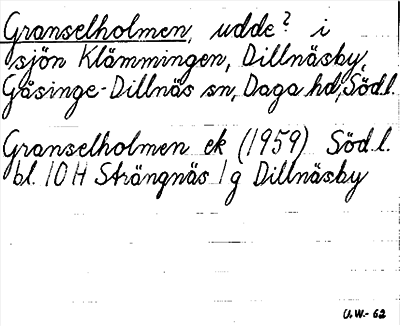 Granselholmen, udde? i
sjön Klämmingen, Dillnäsby,
Gåsinge-Dillnäs sn, Daga hd, Södl.
Granselholmen ek (1959) Södl.
bl. 10 H Strängnäs 1 g Dillnäsby
U.W.-62